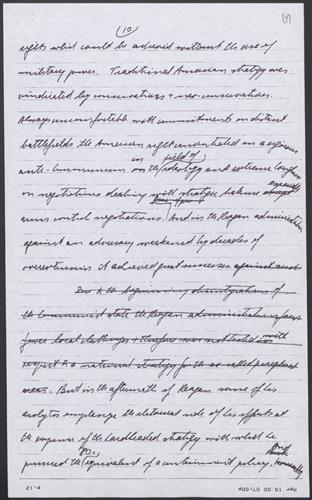 (10)
efforts which could be achieved without the use of
military power. Traditional American strategy was
vindicated by conservatives + neo-conservatives.
Always uncomfortable with commitments on distant
battlefields the American right concentrated on a vigorous
anti-Communism in the field of ideology and extreme toughness
on negotiations dealing with strategic balance except especially
arms control negotiations. And in the Reagan administration
against an adversary weakened by decades of
overextension. it achieved great successes against
But the beginning disintegration of
the Communist state the Reagan administration faced
fewer local challenges + therefore was not tested with
respect to a national strategy for the so called peripheral
areas. But in the aftermath of Reagan some of his
acolytes emphasize the rhetorical side of his efforts at
the expense of the hardheaded strategy with which he
pursued the equivalent of a containment policy
P.12
Apr 15 00 07:00p